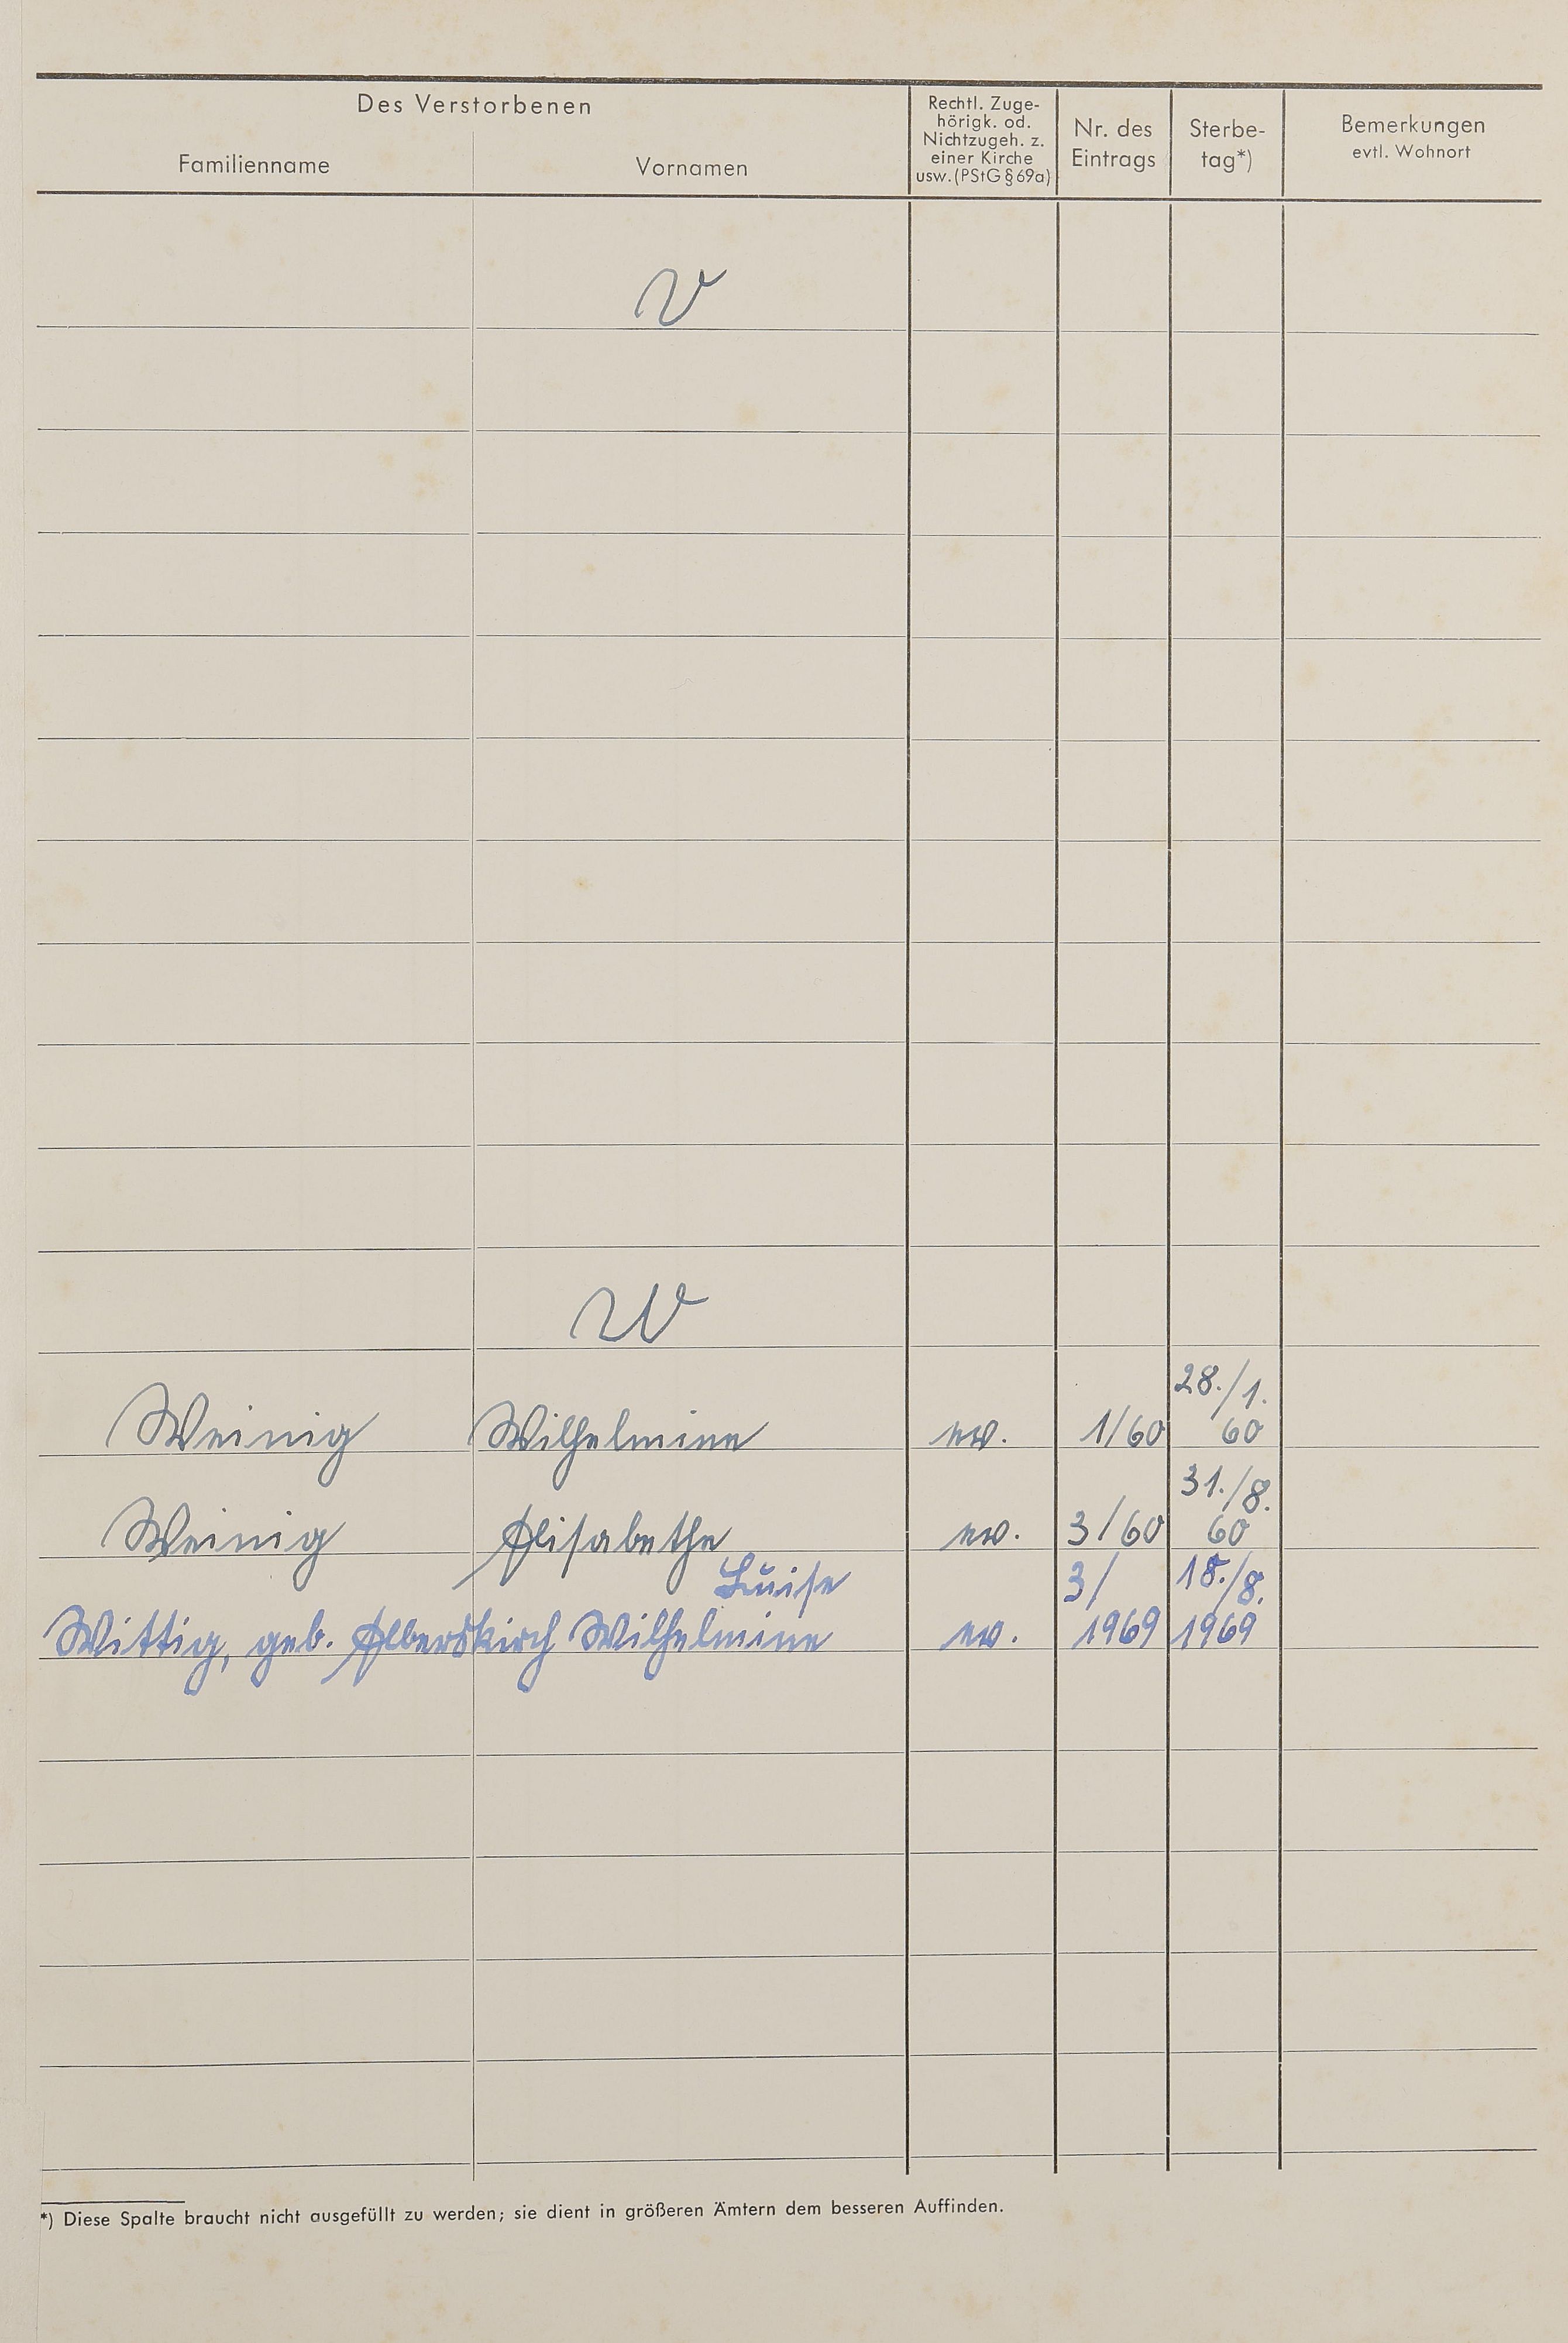 Des Verstorbenen
Familienname
Vornamen
Rechtl. Zuge-
hörigk. od.
Nichtzugeh. z.
einer Kirche
usw. (PStG § 69a)
Nr. des
Eintrags
Sterbe-
tag*)
Bemerkungen
evtl. Wohnort
V
W
28./1.
Weinig Wilhelmine ev. 1/60 60
31./8.
Weinig Elisabethe ev. 3/60 60
Luise 3/ 18./8.
Wittig, geb. Alberskirch Wilhelmine ev. 1969 1969
*) Diese Spalte braucht nicht ausgefüllt zu werden; sie dient in größeren Ämtern dem besseren Auffinden.